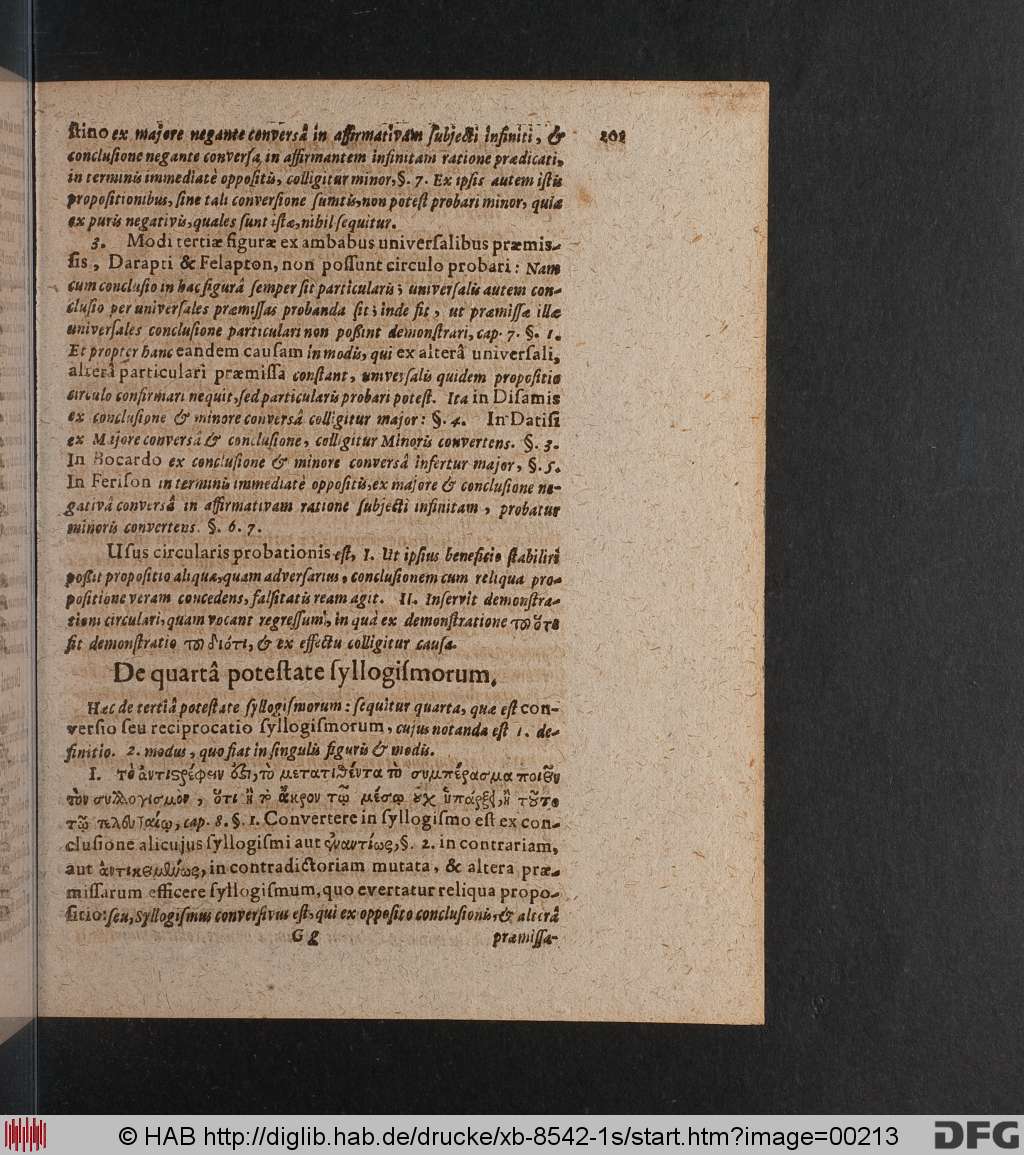 ſtino ex majore negante conversâ in affirmativam ſubjecti infiniti, & 202
concluſione negante converſa in affirmantem infinitam ratione prædicati,
in terminis immediatè oppoſitis, colligitur minor, §. 7. Ex ipſis autem iſtis
propoſitionibus, ſine tali converſione ſumtis, non poteſt probari minor, quia
ex puris negativis, quales ſunt iſtæ, nihil ſequitur.
3. Modi tertiæ figuræ ex ambabus univerſalibus præmiſ-
ſis, Darapti & Felapton, non poſſunt circulo probari: Nam
cum concluſio in hac figurâ ſemper ſit particularis; univerſalis autem con-
cluſio per univerſales præmiſſas probanda ſit; inde fit, ut præmiſſæ illæ
univerſales concluſione particulari non poßint demonſtrari, cap. 7. §. 1.
Et propter hanc eandem cauſam in modis, qui ex alterâ univerſali,
alterâ particulari præmiſſa conſtant, univerſalis quidem propoſitio
circulo confirmari nequit, ſed particularis probari poteſt. Ita in Diſamis
ex concluſione & minore conversâ colligitur major: §. 4. In Datiſi
ex Majore conversâ & concluſione, colligitur Minoris convertens. §. 3.
In Bocardo ex concluſione & minore conversâ infertur major, §. 5.
In Feriſon in terminis immediatè oppoſitis, ex majore & concluſione ne-
gativâ conversâ in affirmativam ratione ſubjecti infinitam, probatur
minoris convertens. §. 6. 7.
Uſus circularis probationis eſt, I. Ut ipſius beneficio ſtabiliri
poſſit propoſitio aliqua, quam adverſarius, concluſionem cum reliqua pro-
poſitione veram concedens, falſitatis ream agit. II. Inſervit demonſtra-
tioni circulari, quam vocant regreſſum, in quâ ex demonſtratione τοῦ ὅτι
fit demonſtratio τοῦ διότι, & ex effectu colligitur cauſa.
De quartâ poteſtate ſyllogiſmorum.
Hæc de tertiâ poteſtate ſyllogiſmorum: ſequitur quarta, quæ eſt con-
verſio ſeu reciprocatio ſyllogiſmorum, cujus notanda eſt 1. de-
finitio. 2. modus, quo fiat in ſingulis figuris & modis.
I. τὸ ἀντιστρέφειν ἐστι, τὸ μετατιθέντα τὸ συμπέρασμα ποιεῖν
τὸν συλλογισμὸν, ὅτι ἢ τὸ ἄκρον τῷ μέσῳ οὐχ ὑπάρξει, ἢ τοῦτο
τῷ τελευταίῳ, cap. 8. §. 1. Convertere in ſyllogiſmo eſt ex con-
cluſione alicujus ſyllogiſmi aut ἐναντίως, §. 2. in contrariam,
aut ἀντικειμένως, in contradictoriam mutata, & altera præ-
miſſarum efficere ſyllogiſmum, quo evertatur reliqua propo-
ſitio: ſeu, Syllogiſmus converſivus eſt, qui ex oppoſito concluſionis, & alterâ
G g præmiſſa-
© HAB http://diglib.hab.de/drucke/xb-8542-1s/start.htm?image=00213
DFG